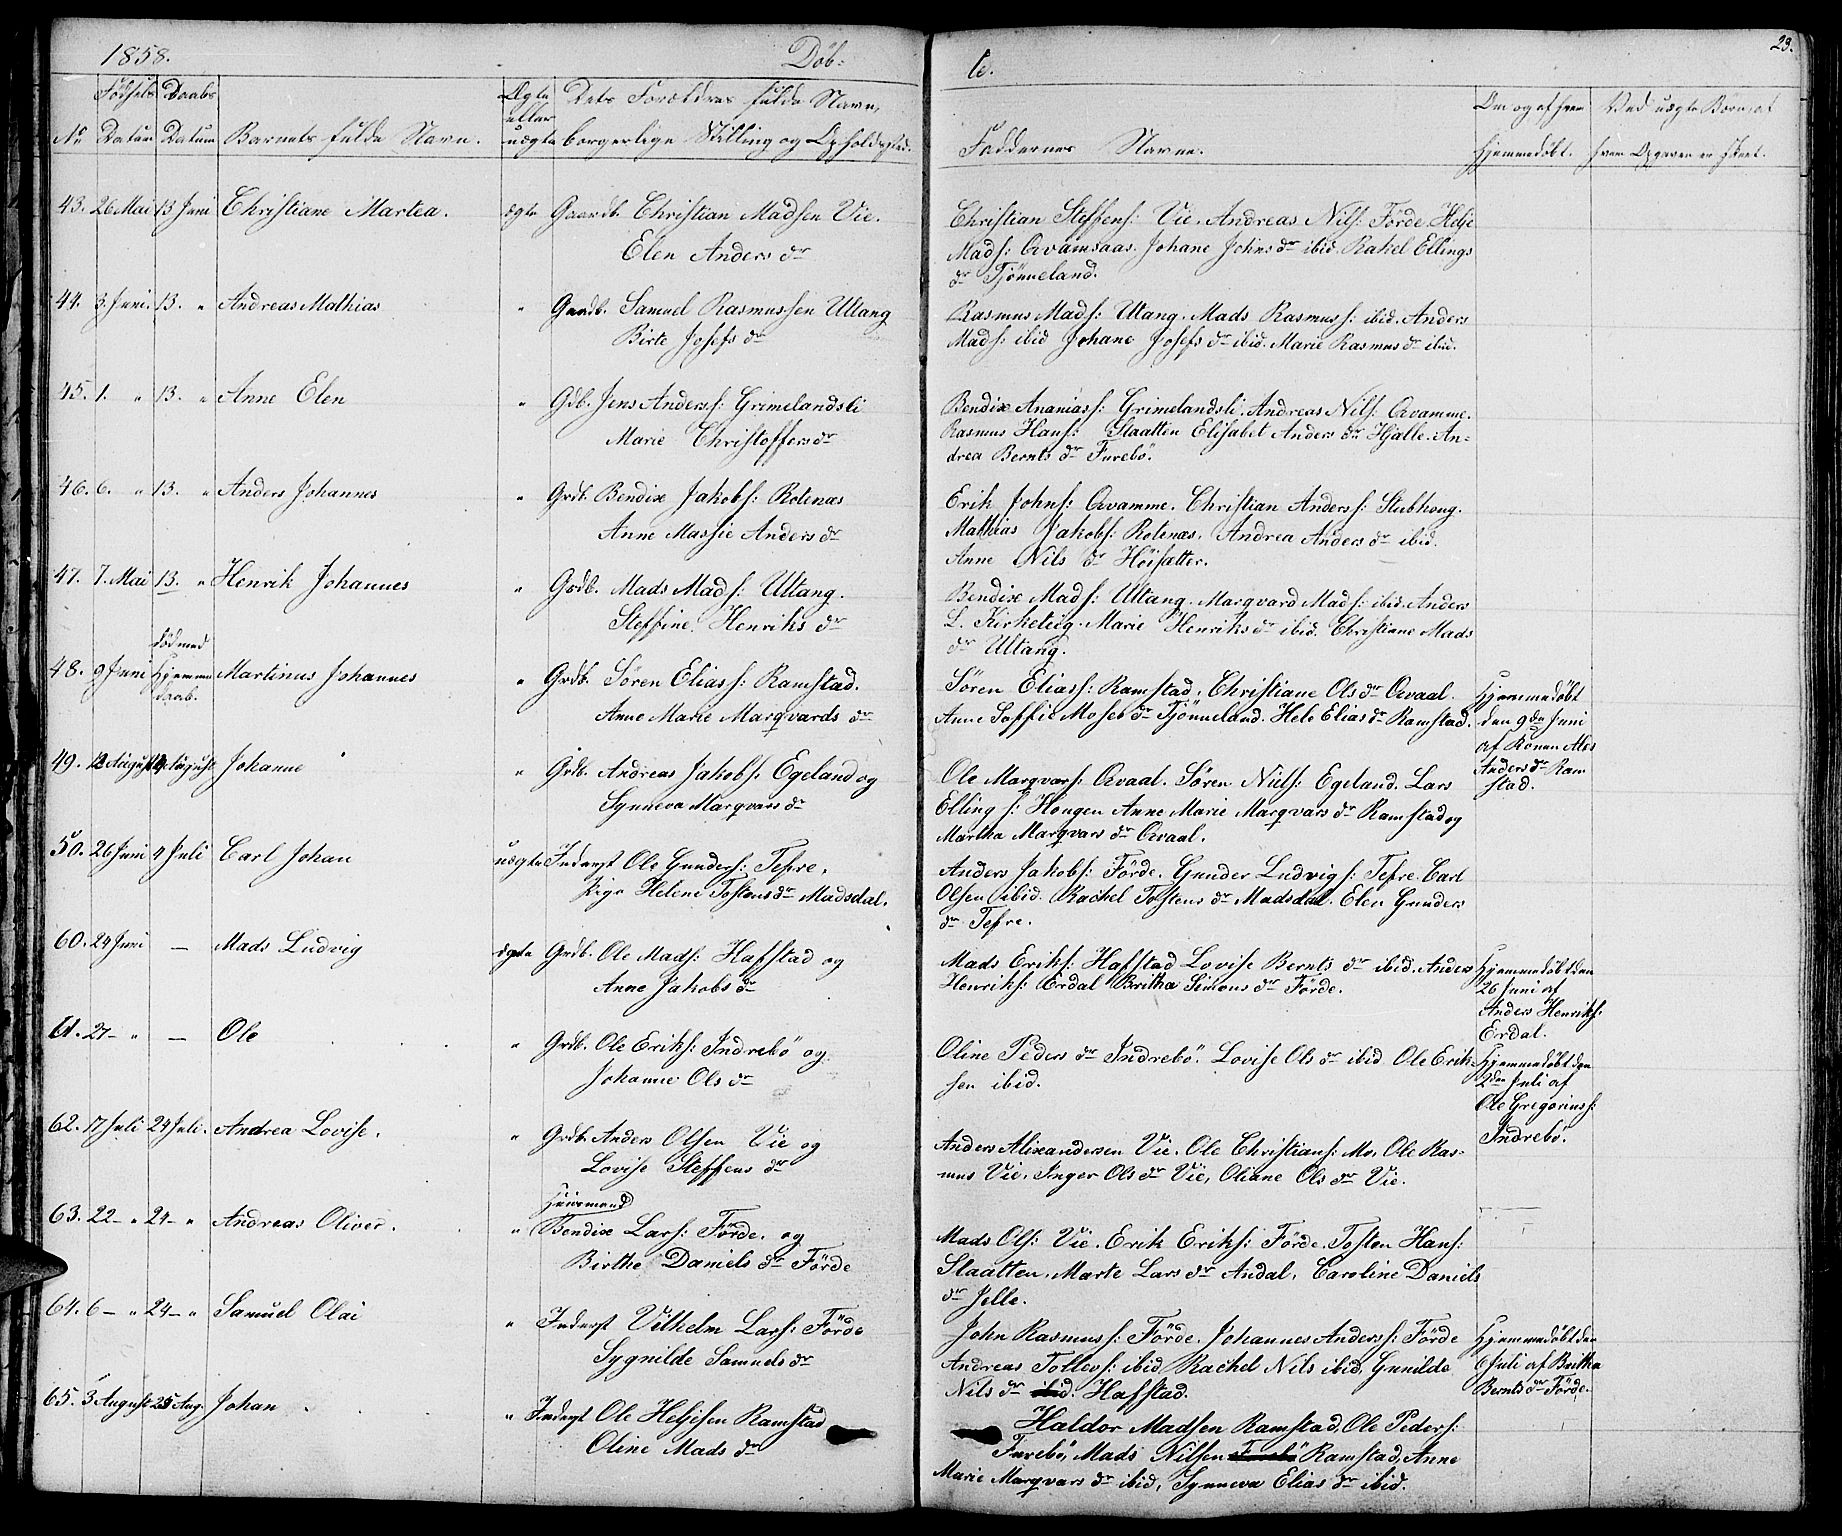 1858.
Döb-
te.
23.
No
Fødsels Datum
Daabs Datum
Barnets fulde Navn.
Ægte eller uægte
Dets Forældres fulde Navn, borgerlige Stilling og Opholdssted.
Faddernes Navne.
Om og af hvem Hjemmedøbt.
Ved uægte Börn, af hvem Opgaven er skeet.
43. 26 Mai 13 Juni Christiane Martea. ægte Gaardb. Christian Madsen Vie.
Elen Anders dr
Christian Steffens: Vie. Andreas Nils: Förde Helje
Mads: Qvamsaas. Johane Johns dr ibid. Rakel Ellings
dr Tjönneland.
44. 3 Juni. 13. " Andreas Mathias " Gaardb. Samuel Rasmussen Ultang
Birte Josefs dr
Rasmus Mads: Ultang. Mads Rasmuss: ibid. Anders
Mads: ibid Johane Josefs dr ibid. Marie Rasmus dr ibid.
45. 1. " 13. " Anne Elen " Gdb. Jens Anderss: Grimelandsli
Marie Christoffers dr
Bendix Ananiass: Grimelandsli. Andreas Nils: Qvamme.
Rasmus Hans: Slaatten Elisabet Anders dr Hjalle. An-
drea Bernts dr Furebö.
46. 6. " 13. " Anders Johannes " Grdb. Bendix Jakobs: Rotenæs
Anne Massie Anders dr
Erik Johns: Qvamme. Christian Anderss: Stubhoug.
Mathias Jakobs: Rotenæs. Andrea Anders dr ibid.
Anne Nils dr Höisætter.
47. 7. Mai 13. " Henrik Johannes " Grdb. Mads Mads: Ultang.
Steffine Henriks dr
Bendix Mads: Ultang. Marqvard Mads: ibid. Anders
L. Kirketeig. Marie Henriks dr ibid. Christiane Mads
dr Ultang.
48. 9 Juni Hjemmedaab. Martinus Johannes " Grdb. Sören Eliass: Ramstad.
Anne Marie Marqvards dr
Sören Eliass: Ramstad. Christiane Ols dr Qvaal.
Anne Soffie Moses dr Tjönneland. Hele Elias dr Ramstad.
Hjemmedöbt
den 9de Juni
af Konen
Anders dr Ram
stad.
49. August August Johanne " Grdb. Andreas Jakobs: Egeland og
Synneva Marqvars dr
Ole Marqvars: Qvaal. Sören Niels: Egeland. Lars
Ellings: Hougen Anne Marie Marqvars dr Ramstad og
Martha Marqvars dr Qvaal.
50. 26 Juni 4 Juli Carl Johan uægte Inderst Ole Gunders: Tefre.
Pige Helene Tostens dr Madsdal.
Anders Jakobs: Förde. Gunder Ludvigs: Tefre. Carl
Olsen ibid. Rachel Tostens dr Madsdal. Elen Gunders
dr Tefre.
60. 24 Juni — Mads Ludvig ægte Grdb. Ole Mads: Hafstad og
Anne Jakobs dr
Mads Eriks: Hafstad Lovise Bernts dr ibid. Anders
Henriks: Erdal Britha Simons dr Förde.
Hjemmedöbt den
26 Juni af
Anders Henriks:
Erdal.
61. 27 — " — Ole " Grdb. Ole Eriks: Indrebö og
Johanne Ols dr
Oline Peders dr Indrebö. Lovise Ols dr ibid. Ole Erik-
sen ibid.
Hjemmedöbt den
2den Juli af
Ole Gregoriuss:
Indrebö.
62. 17 Juli 24 Juli. Andrea Lovise. " Grdb. Anders Olsen Vie og
Lovise Steffens dr
Anders Alixandersen Vie. Ole Christians: Mo, Ole Ras-
mus Vie, Inger Ols dr Vie, Oliane Ols dr Vie.
63. 22 — " 24 — " Andreas Oliver. " Huusmand
Bendix Lars: Förde. og
Birthe Daniels dr Förde
Mads Ols: Vie. Erik Eriks: Förde. Tosten Hans:
Slaatten. Marte Lars dr Andal, Caroline Daniels
dr Jelle.
64. 6 — " 24 — " Samuel Olai " Inderst Vilhelm Lars: Förde
Sygnilde Samuels dr
John Rasmuss: Förde. Johannes Anderss: Förde
Andreas Tollevs: ibid Rachel Nils ibid, Gunilde
Nils dr ibid. Hafstad.
Hjemmedöbt den
6 Juli af Britha
Bernts dr Förde.
65. 3 August 25 Aug. Johan " Inderst Ole Heljesen Ramstad
Oline Mads dr
Haldor Madsen Ramstad, Ole Peders:
Furebö, Mads Nilsen Furebö Ramstad, Anne
Marie Marqvars dr ibid, Synneva Elias dr ibid.